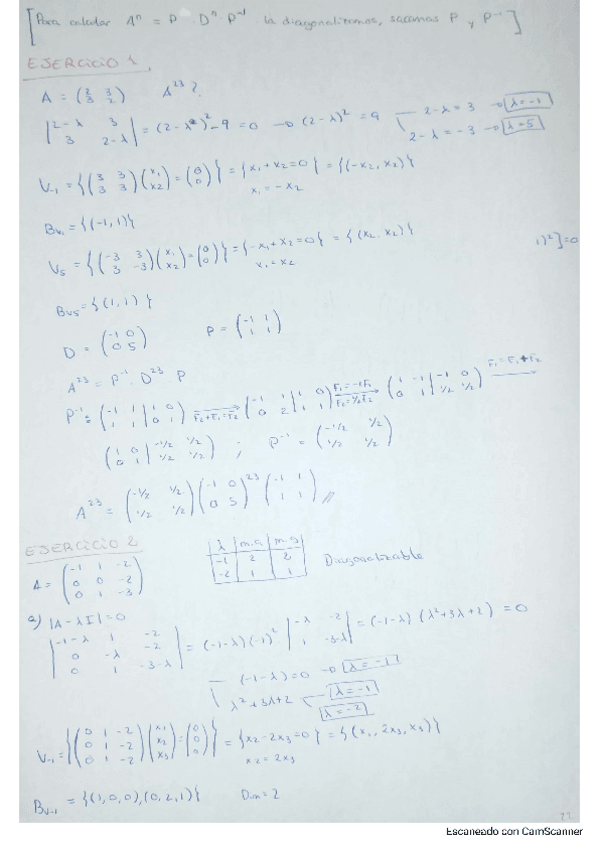 [Para calcular Aⁿ = P Dⁿ P⁻¹ la diagonalizamos, sacamos P y P⁻¹]
EJERCICIO 1.
A = (2 3; 3 2) A²³ ?
|2-λ 3; 3 2-λ| = (2-λ)² - 9 = 0 → (2-λ)² = 9 2-λ = 3 → λ = -1
2-λ = -3 → λ = 5
V₋₁ = {(3 3; 3 3)(x₁; x₂) = (0; 0)} = {x₁ + x₂ = 0} = {(-x₂, x₂)}
x₁ = -x₂
1)²] = 0
B_V₋₁ = {(-1, 1)}
V₅ = {(-3 3; 3 -3)(x₁; x₂) = (0; 0)} = {-x₁ + x₂ = 0} = {(x₂, x₂)}
x₁ = x₂
B_V₅ = {(1, 1)}
D = (-1 0; 0 5) P = (-1 1; 1 1)
A²³ = P⁻¹ · D²³ · P
P⁻¹ = (-1 1 | 1 0; 1 1 | 0 1) F₂+F₁=F₂ → (-1 1 | 1 0; 0 2 | 1 1) F₁=-1F₁ F₂=½F₂ → (1 -1 | -1 0; 0 1 | ½ ½) F₁=F₁+F₂ →
(1 0 | -½ ½; 0 1 | ½ ½) ; P⁻¹ = (-½ ½; ½ ½)
A²³ = (-½ ½; ½ ½)(-1 0; 0 5)²³ (-1 1; 1 1) //
EJERCICIO 2
λ | m.a | m.g
-1 | 2 | 2
-2 | 1 | 1
Diagonalizable
A = (-1 1 -2; 0 0 -2; 0 1 -3)
a) |A - λI| = 0
|-1-λ 1 -2; 0 -λ -2; 0 1 -3-λ| = (-1-λ)(-1)² |-λ -2; 1 -3-λ| = (-1-λ)(λ²+3λ+2) = 0
(-1-λ) = 0 → λ = -1
λ²+3λ+2 λ = -1
λ = -2
V₋₁ = {(0 1 -2; 0 1 -2; 0 1 -2)(x₁; x₂; x₃) = (0; 0; 0)} = {x₂ - 2x₃ = 0} = {(x₁, 2x₃, x₃)}
x₂ = 2x₃
B_V₋₁ = {(1, 0, 0), (0, 2, 1)} Dim = 2
Escaneado con CamScanner